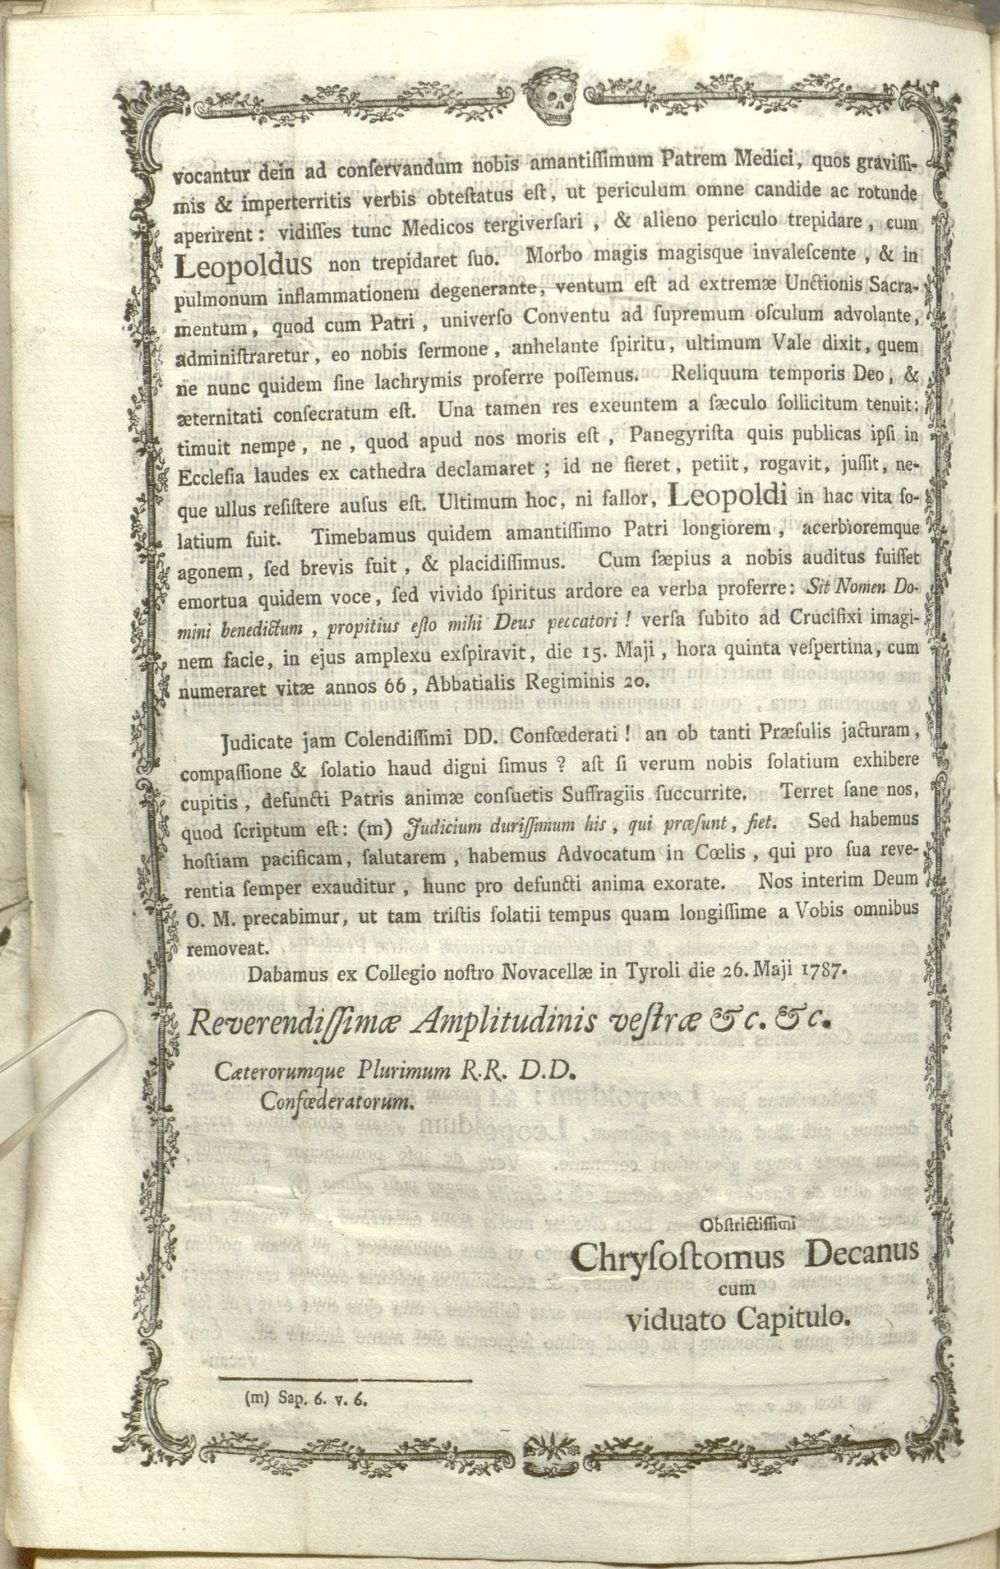 vocantur dein ad conſervandum nobis amantiſſimum Patrem Medici, quos graviſſi-
mis & imperterritis verbis obteſtatus eſt, ut periculum omne candide ac rotunde
aperirent: vidiſſes tunc Medicos tergiverſari, & alieno periculo trepidare, cum
Leopoldus non trepidaret ſuo. Morbo magis magisque invaleſcente, & in
pulmonum inflammationem degenerante, ventum eſt ad extremæ Unctionis Sacra-
mentum, quod cum Patri, univerſo Conventu ad ſupremum oſculum advolante,
adminiſtraretur, eo nobis ſermone, anhelante ſpiritu, ultimum Vale dixit, quem
ne nunc quidem ſine lachrymis proferre poſſemus. Reliquum temporis Deo, &
æternitati conſecratum eſt. Una tamen res exeuntem a ſæculo ſollicitum tenuit:
timuit nempe, ne, quod apud nos moris eſt, Panegyriſta quis publicas ipſi in
Eccleſia laudes ex cathedra declamaret; id ne fieret, petiit, rogavit, juſſit, ne-
que ullus reſiſtere auſus eſt. Ultimum hoc, ni fallor, Leopoldi in hac vita ſo-
latium fuit. Timebamus quidem amantiſſimo Patri longiorem, acerbioremque
agonem, ſed brevis fuit, & placidiſſimus. Cum ſæpius a nobis auditus fuiſſet
emortua quidem voce, ſed vivido ſpiritus ardore ea verba proferre: Sit Nomen Do-
mini benedictum, propitius eſto mihi Deus peccatori! verſa ſubito ad Crucifixi imagi-
nem facie, in ejus amplexu exſpiravit, die 15. Maji, hora quinta veſpertina, cum
numeraret vitæ annos 66, Abbatialis Regiminis 20.
Judicate jam Colendiſſimi DD. Confœderati! an ob tanti Præſulis jacturam,
compaſſione & ſolatio haud digni ſimus? aſt ſi verum nobis ſolatium exhibere
cupitis, defuncti Patris animæ conſuetis Suffragiis ſuccurrite. Terret ſane nos,
quod ſcriptum eſt: (m) Judicium duriſſimum his, qui præſunt, fiet. Sed habemus
hoſtiam pacificam, ſalutarem, habemus Advocatum in Cœlis, qui pro ſua reve-
rentia ſemper exauditur, hunc pro defuncti anima exorate. Nos interim Deum
O. M. precabimur, ut tam triſtis ſolatii tempus quam longiſſime a Vobis omnibus
removeat.
Dabamus ex Collegio noſtro Novacellæ in Tyroli die 26. Maji 1787.
Reverendiſſimæ Amplitudinis veſtræ &c. &c.
Cæterorumque Plurimum R.R. D.D.
Confœderatorum.
Obſtrictiſſimi
Chryſoſtomus Decanus
cum
viduato Capitulo.
(m) Sap. 6. v. 6.